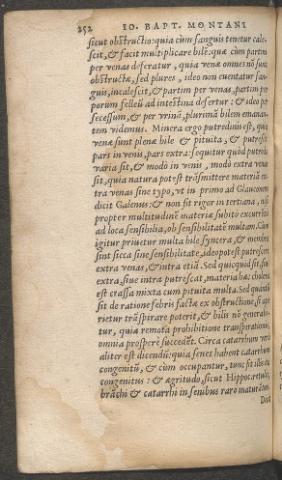 252 IO. BAPT. MONTANI
sicut obstructio: quia cùm sanguis tenetur cale-
scit, & facit multiplicare bilē: quæ cùm partim
per venas deferatur, quia venæ omnes nō sunt
obstructæ, sed plures, ideo non euentatur san-
guis, incalescit, & partim per venas, partim per
porum felleū ad intestina defertur: & ideo per
secessum, & per vrinā, plurimā bilem emanan-
tem videmus. Minera ergo putredinis est, quia
venæ sunt plenæ bile & pituita, & putrescit
pars in venis, pars extra: sequitur quòd putredo
varia sit, & modò in venis, modò extra venas
sit, quia natura potest trāsmittere materiā ex-
tra venas sine typo, vt in primo ad Glauconem
dicit Galenus: & non fit rigor in tertiana, nisi
propter multitudinē materiæ subitò excurrētis
ad loca sensibilia, ob sensibilitatē multam. Cum
igitur priuetur multa bile syncera, & membra
sint sicca sine sensibilitate, ideo potest putrescere
extra venas, & intra etiā. Sed quicquid sit, siue
extra, siue intra putrescat, materia hæc cholerica
est crassa mixta cum pituita multa. Sed quanuis
sit de ratione febris factæ ex obstructione, si ape-
rietur trāspirare poterit, & bilis nō generabi-
tur, quia remota prohibitione transpirationis
omnia prosperè succedūt. Circa catarrhum verò
aliter est dicendū: quia senex habent catarrhum
congenitū, & cùm occupantur, tunc fit illis cō-
congenitus: & ægritudo, sicut Hippoc. retulit,
brāchi & catarrhi in senibus raro maturātur.